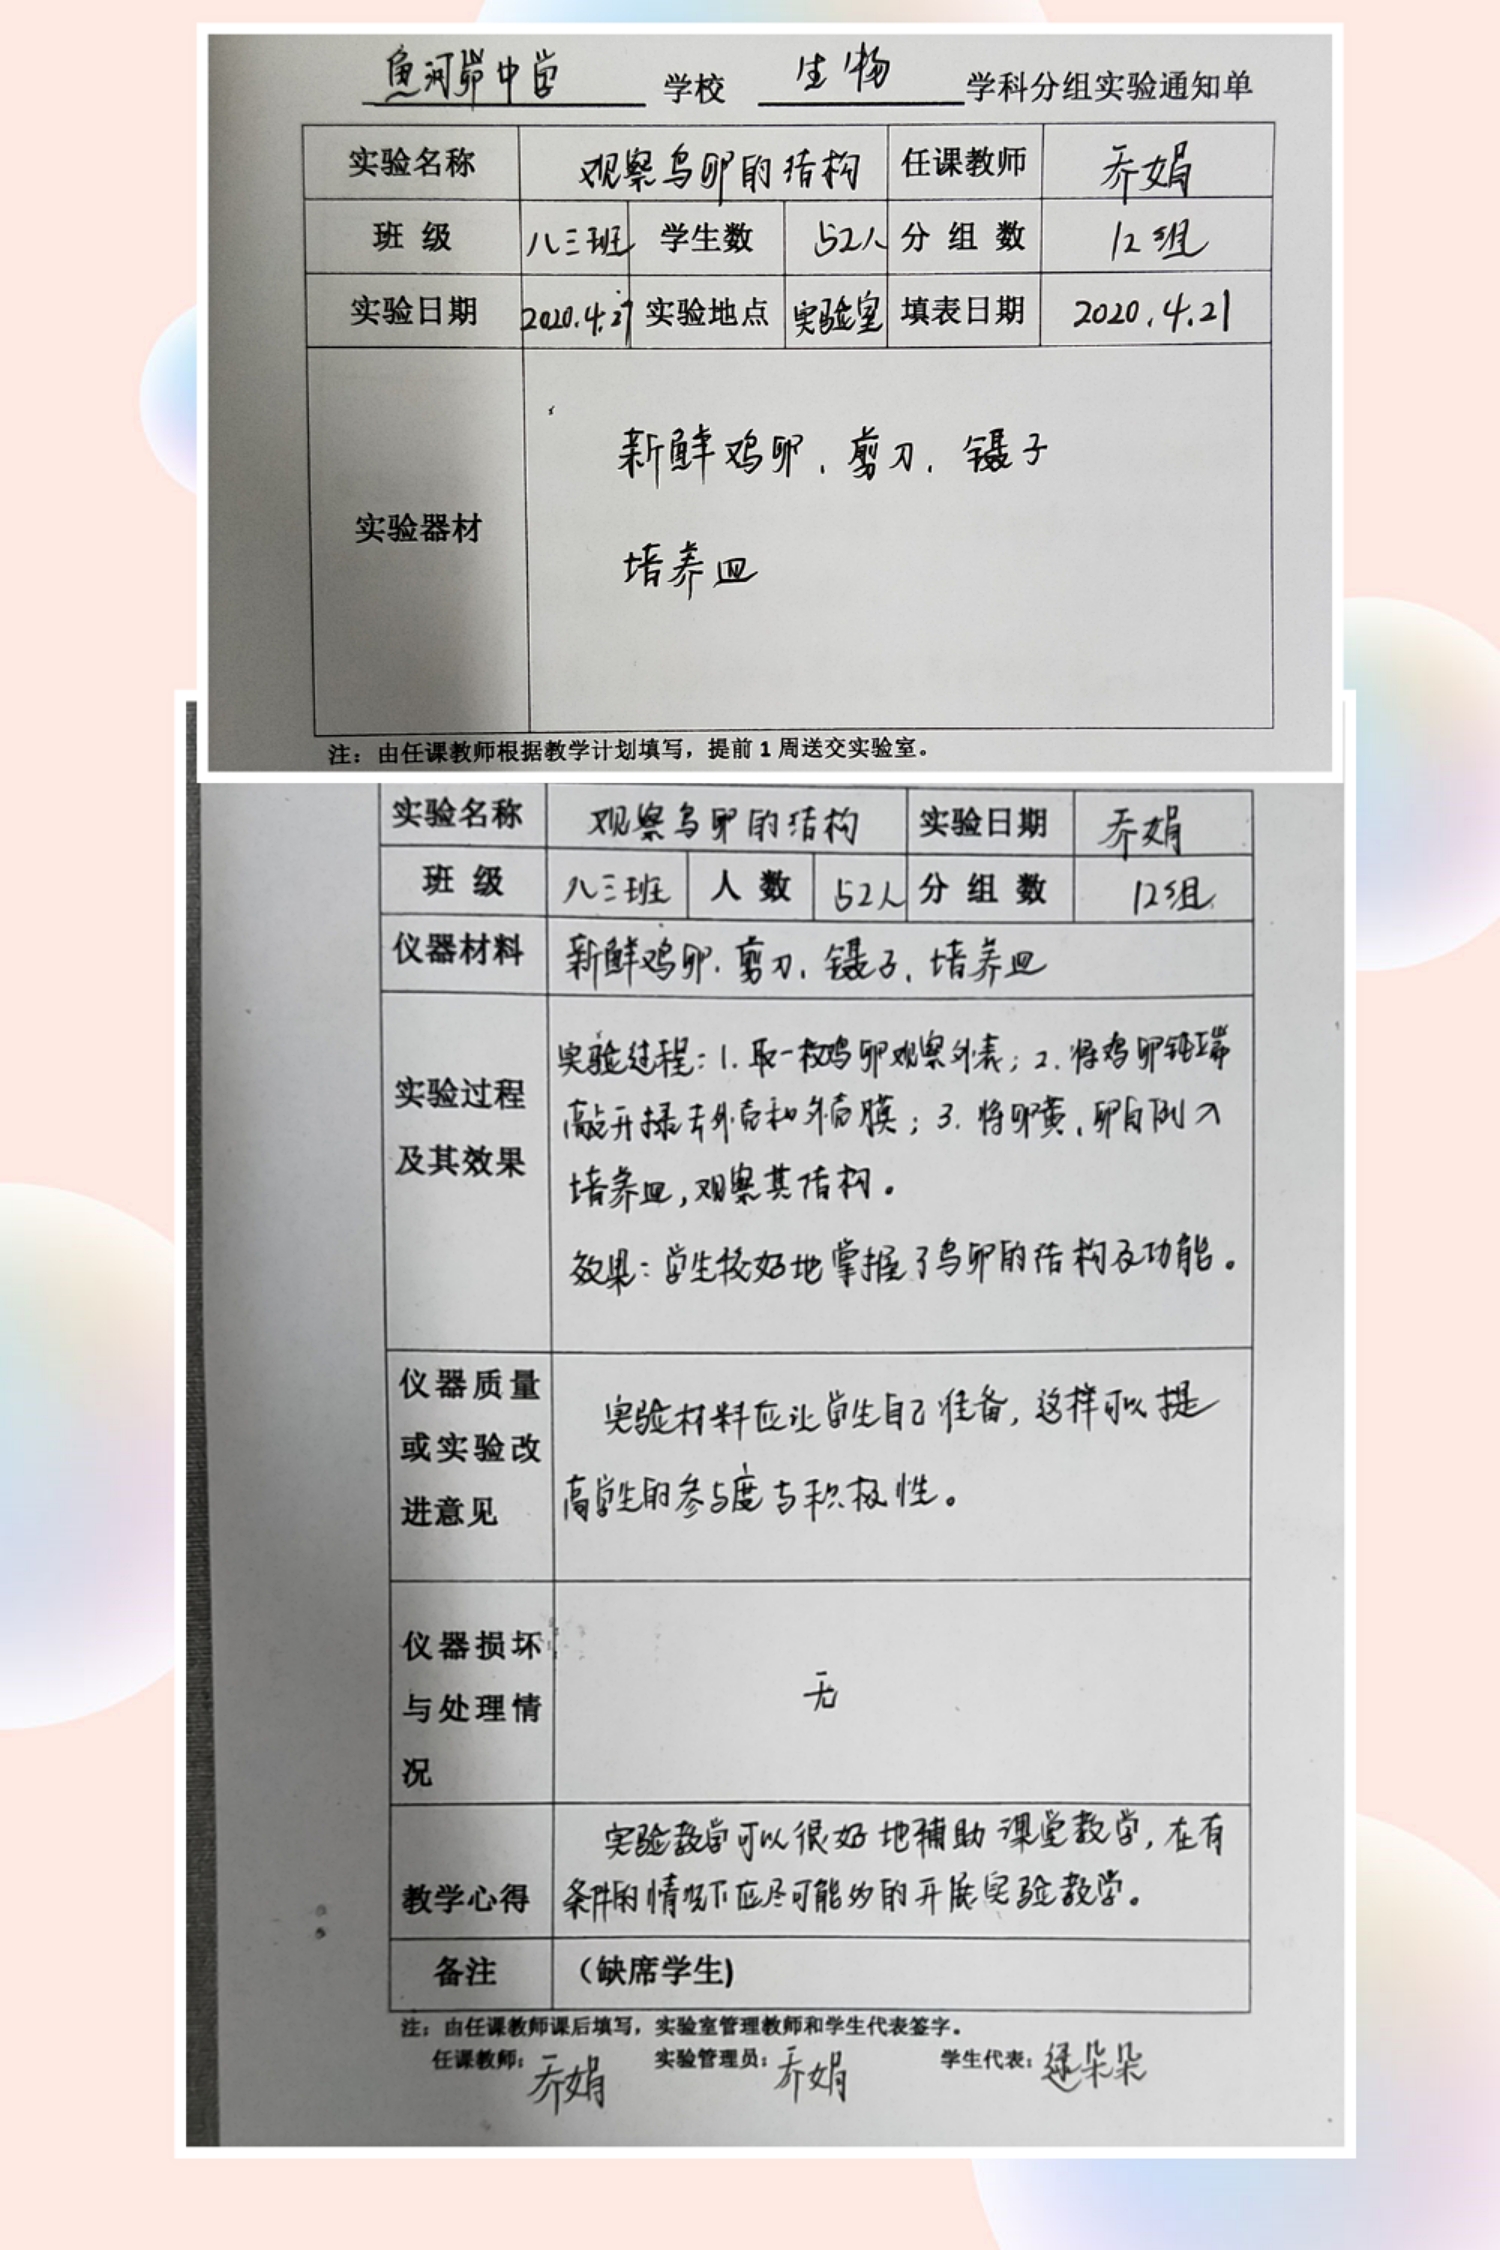 鱼河峁中学 学校 生物 学科分组实验通知单
实验名称 观察鸟卵的结构 任课教师 乔娟
班 级 八三班 学生数 52人 分 组 数 12组
实验日期 2020.4.27 实验地点 实验室 填表日期 2020.4.21
新鲜鸡卵、剪刀、镊子
实验器材
培养皿
注：由任课教师根据教学计划填写，提前1周送交实验室。
实验名称 观察鸟卵的结构 实验日期 乔娟
班 级 八三班 人 数 52人 分 组 数 12组
仪器材料 新鲜鸡卵、剪刀、镊子、培养皿
实验过程及其效果
实验过程：1.取一枚鸡卵观察外表；2.将鸡卵钝端
敲开揉去外壳和外壳膜；3.将卵黄、卵白倒入
培养皿，观察其结构。
效果：学生较好地掌握了鸟卵的结构及功能。
仪器质量
或实验改
进意见
实验材料应让学生自己准备，这样可以提
高学生的参与度与积极性。
仪器损坏
与处理情
况
无
教学心得
实验教学可以很好地辅助课堂教学，在有
条件的情况下应尽可能多的开展实验教学。
备注 （缺席学生)
注：由任课教师课后填写，实验室管理教师和学生代表签字。
任课教师：乔娟 实验管理员：乔娟 学生代表：朵朵